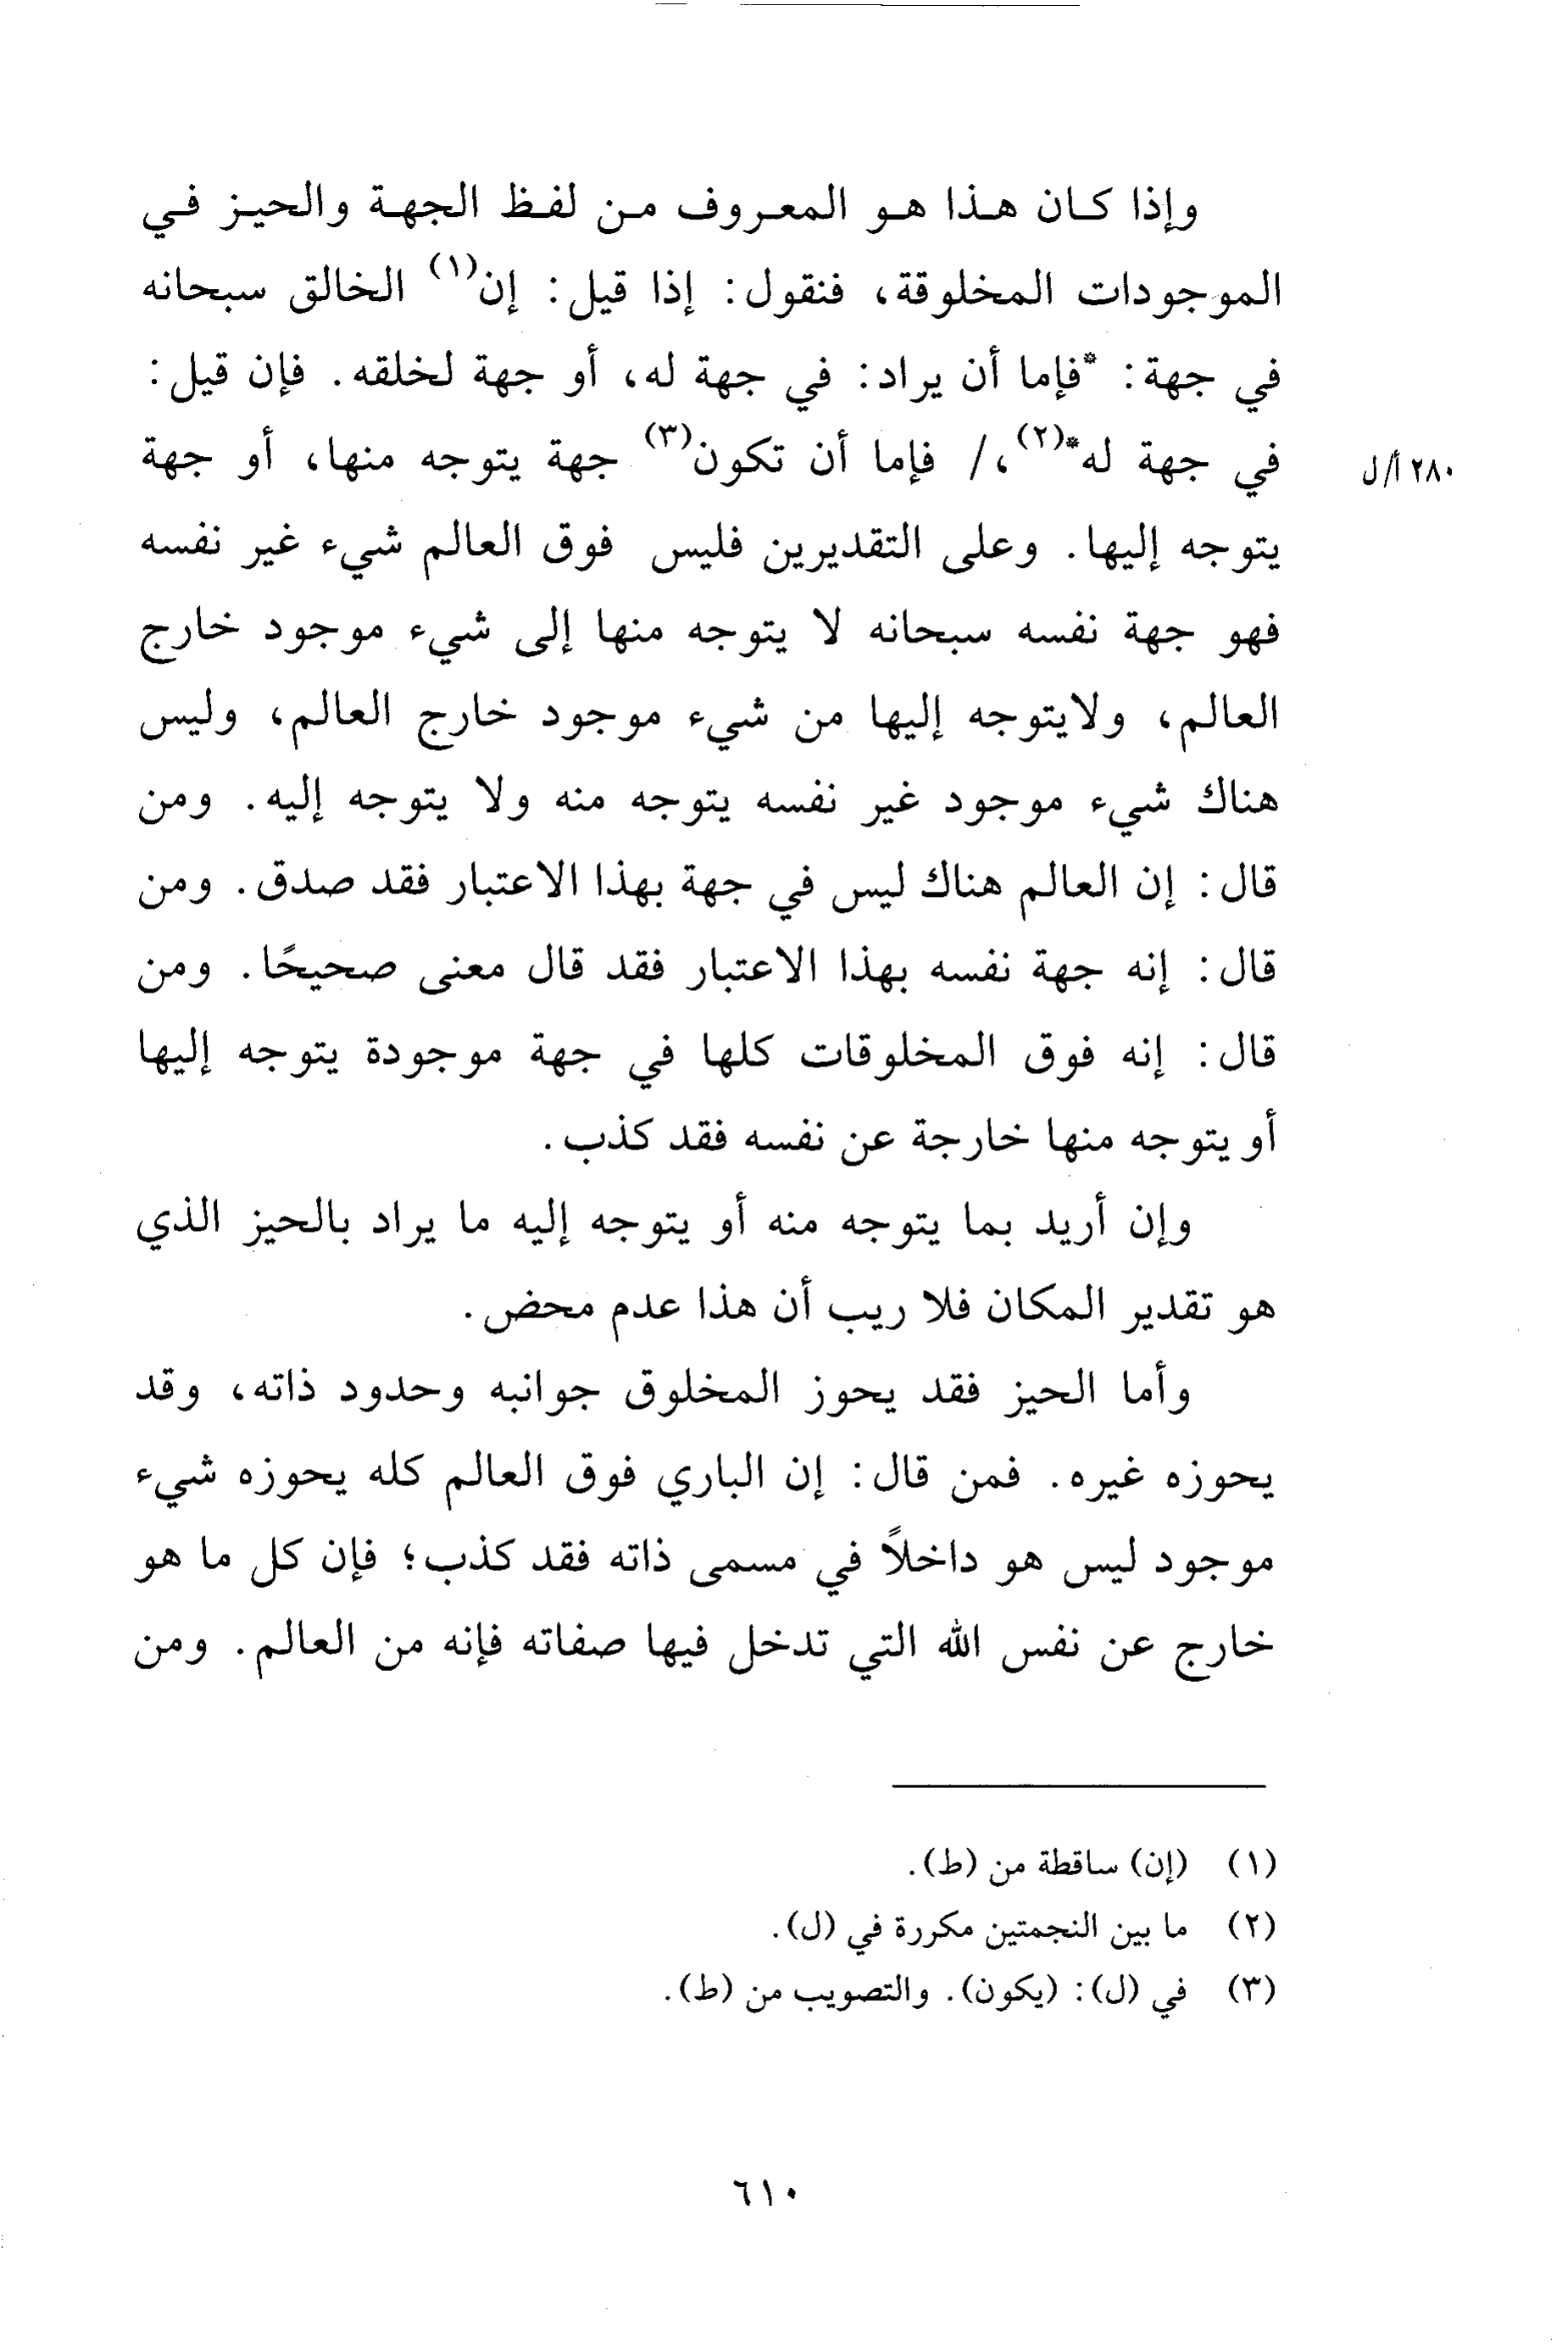 وإذا كان هذا هو المعروف من لفظ الجهة والحيز في
الموجودات المخلوقة، فنقول: إذا قيل: إن(١) الخالق سبحانه
في جهة: *فإما أن يراد: في جهة له، أو جهة لخلقه. فإن قيل:
في جهة له*(٢)،/ فإما أن تكون(٣) جهة يتوجه منها، أو جهة
٢٨٠أ/ل
يتوجه إليها. وعلى التقديرين فليس فوق العالم شيء غير نفسه
فهو جهة نفسه سبحانه لا يتوجه منها إلى شيء موجود خارج
العالم، ولايتوجه إليها من شيء موجود خارج العالم، وليس
هناك شيء موجود غير نفسه يتوجه منه ولا يتوجه إليه. ومن
قال: إن العالم هناك ليس في جهة بهذا الاعتبار فقد صدق. ومن
قال: إنه جهة نفسه بهذا الاعتبار فقد قال معنى صحيحًا. ومن
قال: إنه فوق المخلوقات كلها في جهة موجودة يتوجه إليها
أو يتوجه منها خارجة عن نفسه فقد كذب.
وإن أريد بما يتوجه منه أو يتوجه إليه ما يراد بالحيز الذي
هو تقدير المكان فلا ريب أن هذا عدم محض.
وأما الحيز فقد يحوز المخلوق جوانبه وحدود ذاته، وقد
يحوزه غيره. فمن قال: إن الباري فوق العالم كله يحوزه شيء
موجود ليس هو داخلاً في مسمى ذاته فقد كذب؛ فإن كل ما هو
خارج عن نفس الله التي تدخل فيها صفاته فإنه من العالم. ومن
(١) (إن) ساقطة من (ط).
(٢) ما بين النجمتين مكررة في (ل).
(٣) في (ل): (يكون). والتصويب من (ط).
٦١٠